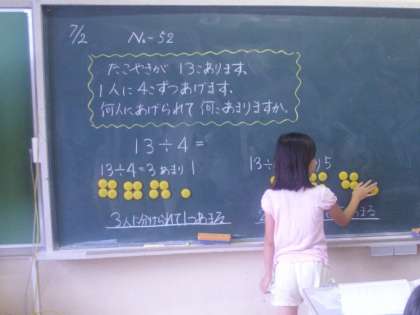 7/2 No-52
たこやきが 13こあります。
1人に 4こずつあげます。
何人にあげられて 何こあまりますか。
13÷4=
13÷4=3 あまり 1
3人に分けられて1つあまる
13÷ 5
まる